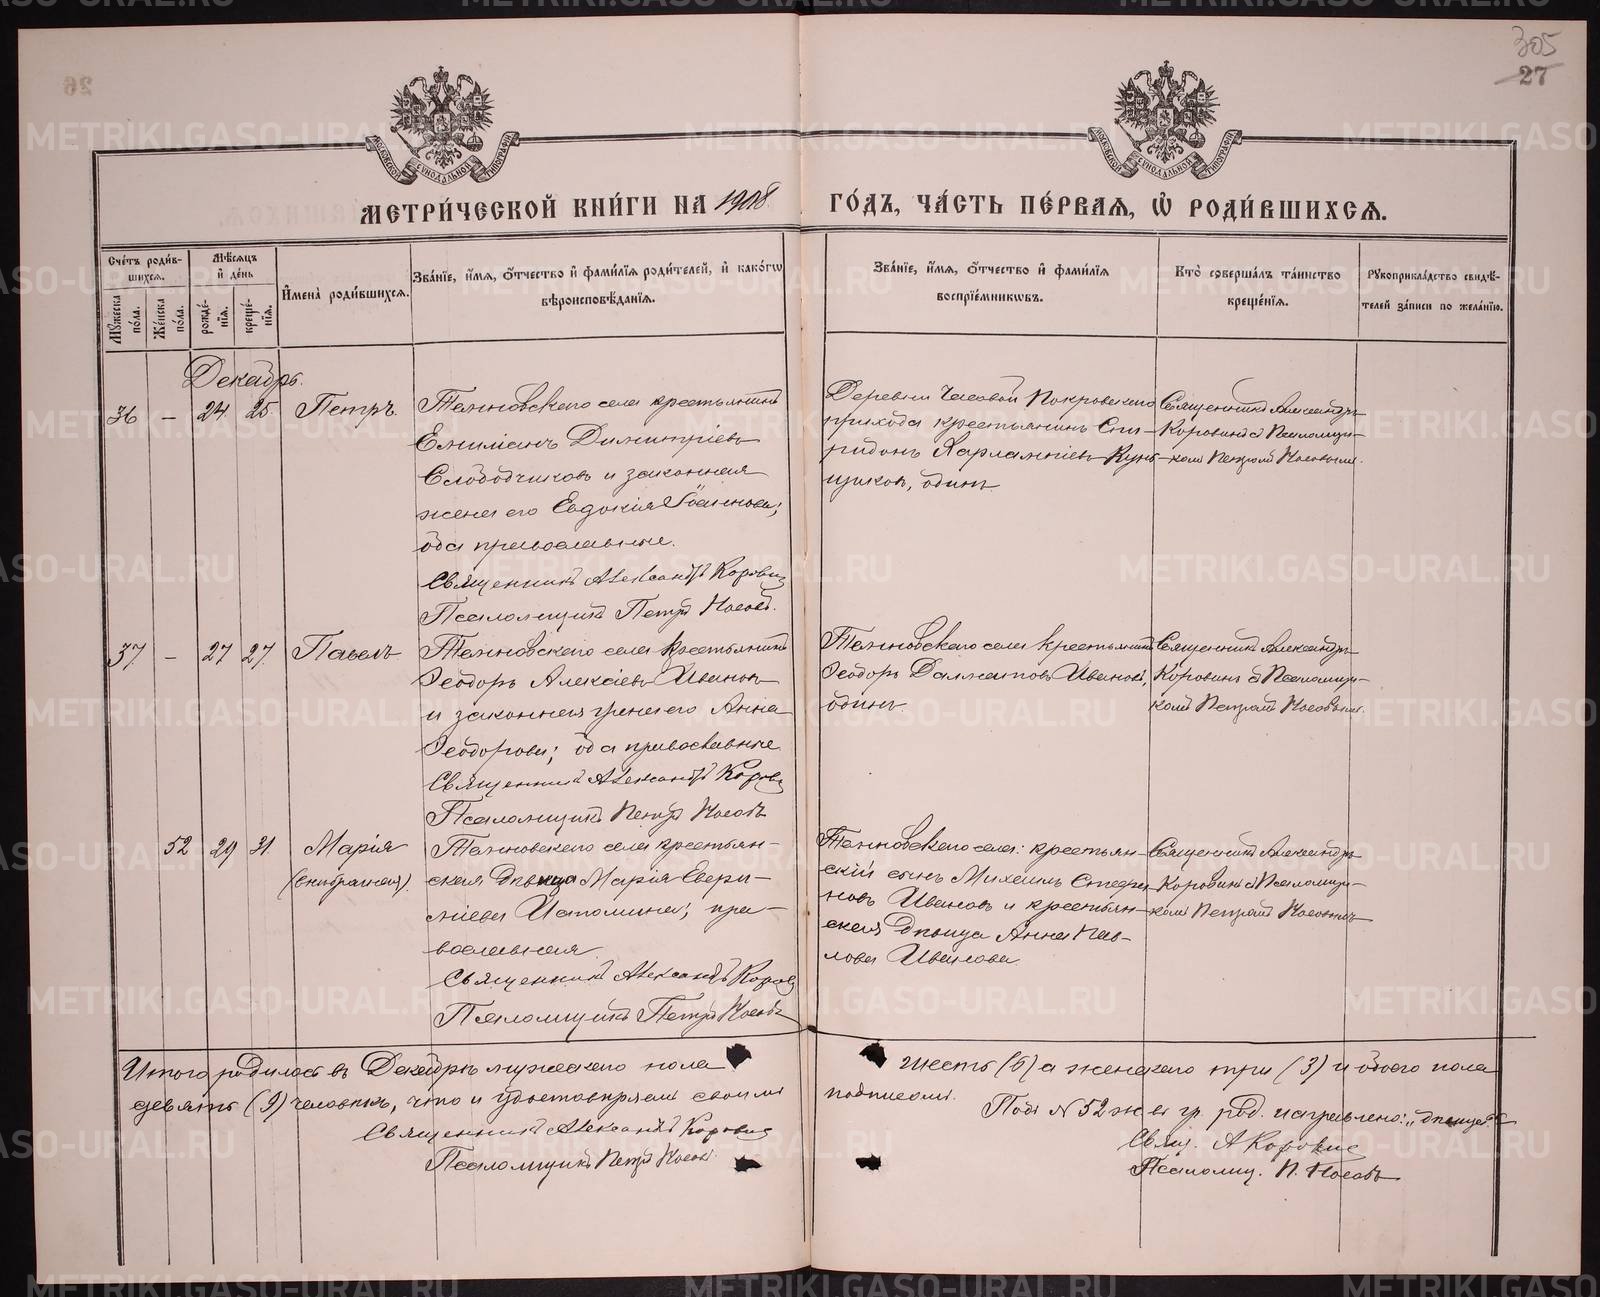 305
27
МЕТРИ́ЧЕСКОЙ КНИ́ГИ НА 1908 ГО́ДЪ, ЧА́СТЬ ПЕ́РВАЯ, Ѡ РОДИ́ВШИХСЯ.
Сче́тъ роди́вшихся.
Мѣ́сяцъ и҆ де́нь
Му́жеска по́ла.
Же́нска по́ла.
рожде́нїя.
креще́нїя.
И҆мена̀ роди́вшихся.
Зва́нїе, и҆́мя, ѻ҆́тчество и҆ фами́лїя роди́телей, и҆ како́гѡ вѣроисповѣ́данїя.
Зва́нїе, и҆́мя, ѻ҆́тчество и҆ фами́лїя воспрїе́мниковъ.
Кто̀ соверша́лъ та́инство креще́нїя.
Рукоприкла́дство свидѣ́телей за́писи по жела́нїю.
Декабрь.
36 – 24. 25. Петръ.
Теченовскаго села крестьянинъ
Емилианъ Димитріевъ
Слободчиковъ и законная
жена его Евдокія Іоаннова;
оба православные.
Священникъ Александръ Коровин
Псаломщикъ Петръ Носовъ.
Деревни Часовой Покровскаго
прихода крестьянинъ Спи-
ридонъ Харлампіевъ Кун-
щиковъ, одинъ.
Священникъ Александръ
Коровинъ съ Псаломщи-
комъ Петромъ Носовымъ.
37 – 27 27. Павелъ
села крестьянинъ
Ѳеодоръ Алексіевъ Ивановъ
и законная жена его Анна
Ѳеодорова; оба православные
Священникъ Александръ Коровин
Псаломщикъ Петръ Носовъ
села крестьянинъ
Ѳеодоръ Далматовъ Ивановъ,
одинъ.
Священникъ Александръ
Коровинъ съ Псаломщи-
комъ Петромъ Носовымъ.
52 29 31. Марія
(внебрачная).
села крестьян-
ская дѣвица Марія
Истомина; пра-
вославная.
Священникъ Александръ Коров
Псаломщикъ Петръ Носовъ
села: крестьян-
скій сынъ Михаилъ Стефа-
новъ Ивановъ и крестьян-
ская дѣвица Анна Пав-
лова Иванова.
Священникъ Александръ
Коровинъ съ Псаломщи-
комъ Петромъ Носовымъ
Итого родилось въ Декабрѣ мужескаго пола шесть (6) а женскаго три (3) и обоего пола
девять (9) человѣкъ, что и удостовѣряемъ своими подписями.
Священникъ Александръ Коровин
Псаломщикъ Петръ Носовъ.
Подъ № 52 ж въ гр. род. исправлено: „дѣвица“
Свящ. А Коровин
Псаломщ. П. Носовъ
METRIKI.GASO-URAL.RU